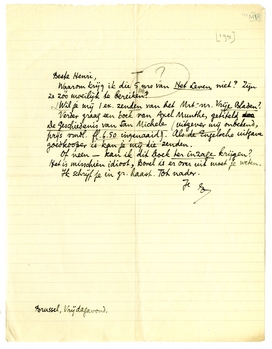 [193]
?
Beste Henri,
Waarom krijg ik die 5 nrs van Het Leven niet? Zijn
ze zóó moeilijk te bereiken?
Wil je mij 1 ex. zenden van het Mrt-nr. Vrije Bladen?
Verder graag een boek van Axel Munthe, getiteld
De Geschiedenis van San Michele (uitgever mij onbekend,
prijs rondt fl. 6.50 ingenaaid). Als de Engelsche uitgave
goedkooper is kan je mij die zenden.
Of neen – kan ik dit Boek ter inzage krijgen?
Het is misschien idioot, Borel is er over uit moet je weten.
Ik schrijf je in gr. haast. Tot nader.
Je
Brussel, Vrijdagavond.